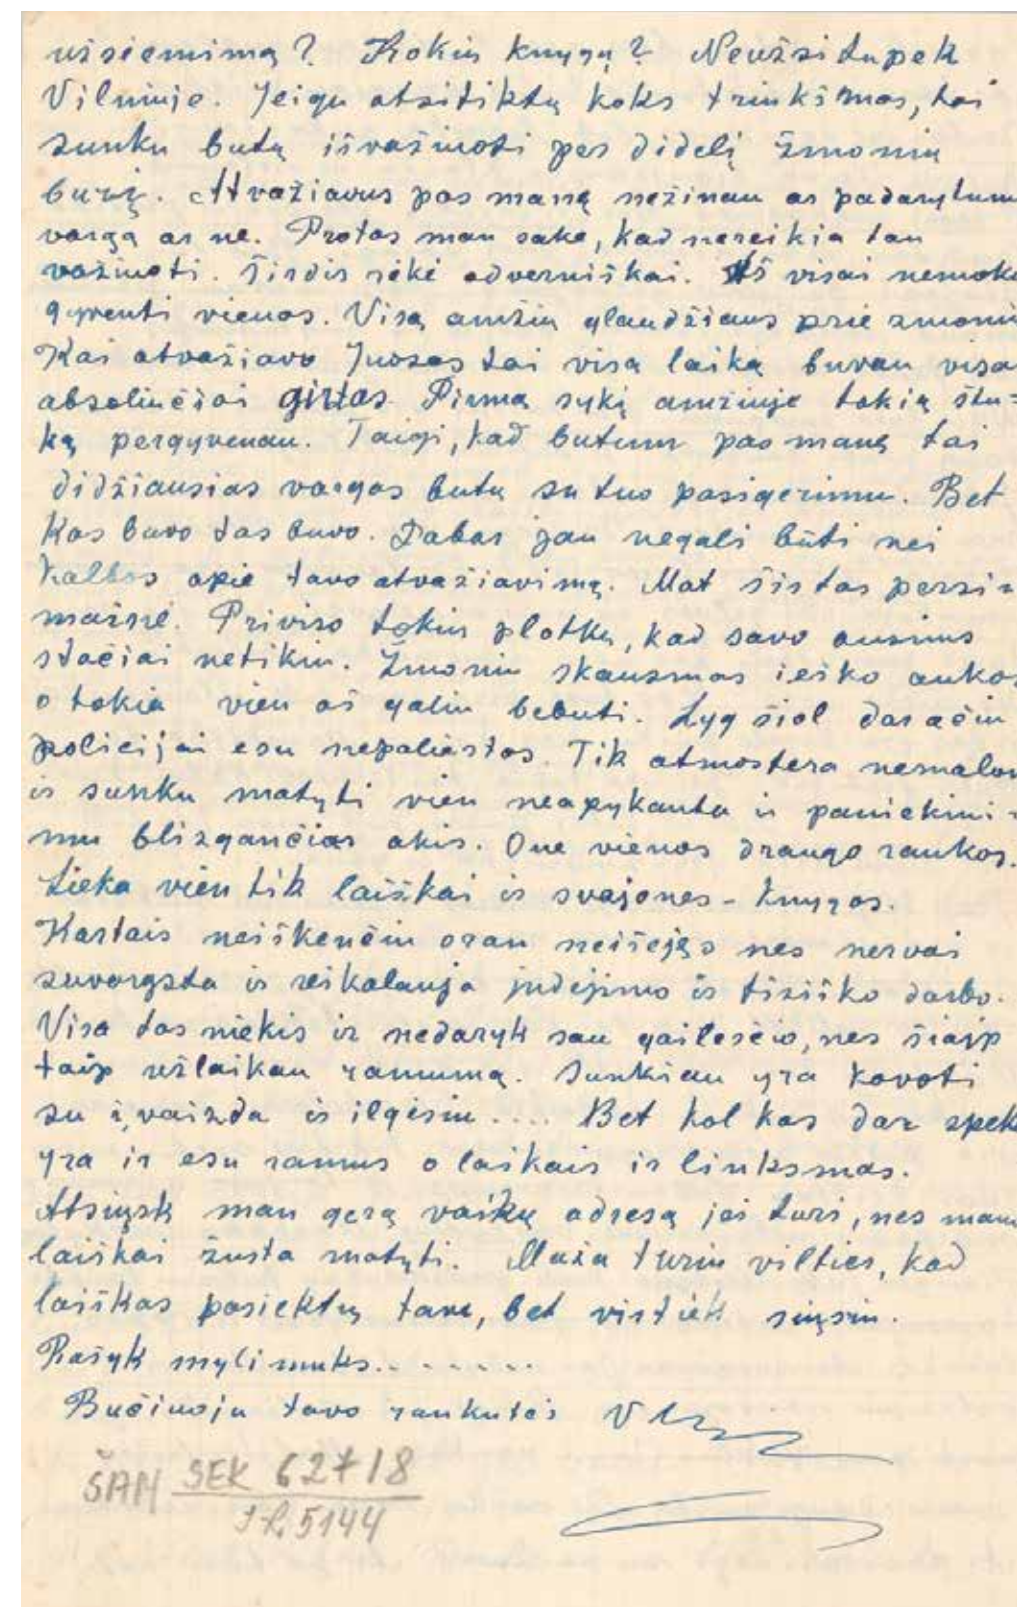 užsiemimą? Kokių knygų? Neužsitupėk
Vilniuje. Jeigu atsitiktų koks trinksmas, tai
sunku butų išvažiuoti per didelį žmonių
burį. Atvažiavus pas manę nežinau ar padarytum
vargą ar ne. Protas man sake, kad nereikia tau
važiuoti. Širdis rėkė adverniškai. Aš visai nemoku
gyventi vienas. Visą amžių glaudžiaus prie zmonių
Kai atvažiavo Juozas tai visą laiką buvau visai
absoliučiai girtas. Pirmą sykį amžiuje tokią štu-
ką pergyvenau. Taigi, kad butum pas manę tai
didžiausias vargas butų su tuo pasigerimu. Bet
Kas buvo tas buvo. Dabar jau negali būti nei
kalbos apie tavo atvažiavimą. Mat šis tas persi-
mainė. Priviso tokių plotkų, kad savo ausimis
stačiai netikiu. Žmonių skausmas ieško aukos
o tokia vien aš galiu bebuti. Lyg šiol dar ačiu
policijai esu nepaliestas. Tik atmosfera nemaloni
ir sunku matyti vien neapykanta ir paniekini-
mu blizgančias akis. One vienos draugo rankos.
Lieka vien tik laiškai ir svajones - knygos.
Kartais neiškenčiu orau neišėjęs nes nervai
suvargsta ir reikalauja judėjimo ir fiziško darbo.
Visa tas niekis ir nedaryk sau gailesčio, nes šiaip
taip užlaikau ramumą. Sunkiau yra kovoti
su įvaizda ir ilgėsiu .... Bet kol kas dar spėk
yra ir esu ramus o laikais ir linksmas.
Atsiųsk man gerą vaikų adresą jei turi, nes mano
laiškai žusta matyti. Maža turiu vilties, kad
laiškas pasiektų tave, bet vistiek siųsiu.
Rašyk mylimuks. . - - - - . .
Bučiuoju tavo rankutės V
ŠAM SEK 6271/8
5144